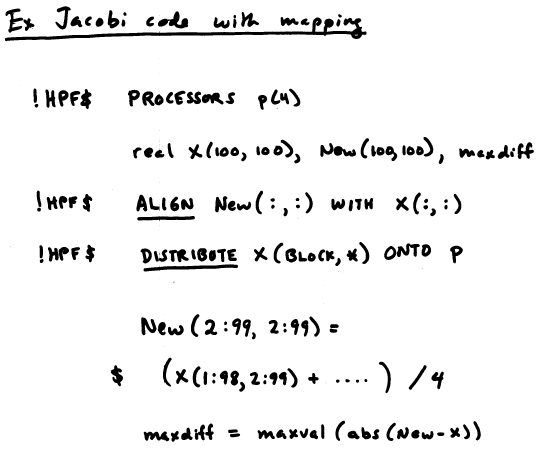 Ex Jacobi code with mapping
!HPF$ PROCESSORS p(4)
real X(100, 100), New(100,100), maxdiff
!HPF$ ALIGN New(:,:) WITH X(:,:)
!HPF$ DISTRIBUTE X(BLOCK,*) ONTO P
New(2:99, 2:99) =
$ (X(1:98,2:99) + ....) / 4
maxdiff = maxval (abs(New-X))